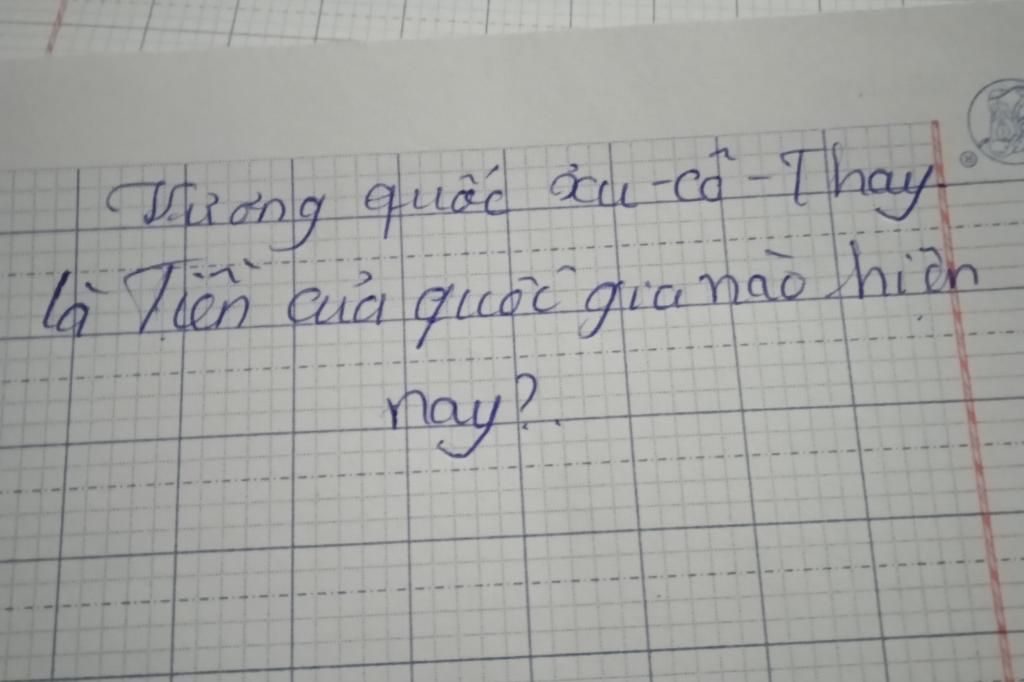 Vương quốc Xu-cô-Thay
là Tiền của quốc gia nào hiện
nay?.